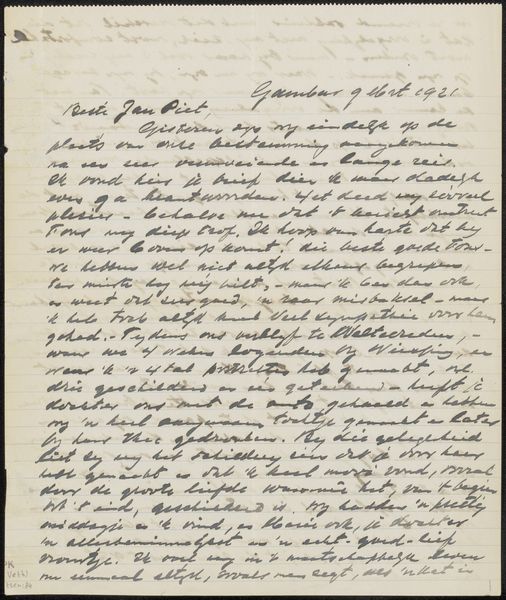 9 Oct 1921
Beste Jan Piet,
Gisteren zijn wij eindelijk op de
plaats van onze bestemming aangekomen
na een zeer vermoeiende en lange reis.
Ik vond hier je brief dien ik maar dadelijk
even ga beantwoorden. Het deed mij zooveel
plezier - behalve nu dat 't bericht omtrent
Tons mij diep trof. Ik hoop van harte dat hij
er weer boven op komt! die beste goede Tons -
we hebben wel niet altijd elkaar begrepen,
ten minste hij mij niet, - maar ik ben dan ook,
en weet dat zeer goed, 'n raar misbaksel - maar
ik heb toch altijd veel sympathie voor hem
gehad. - Tijdens ons verblijf te Weltevreden, -
waar we 4 weken logeerden bij
waar ik 'n 4 tal portretten heb gemaakt, nl.
drie geschilderd en één geteekend - heeft je
dochter ons met de auto gehaald en hebben
wij 'n heel aangenaam tochtje gemaakt en later
bij haar thee gedronken. Bij die gelegenheid
liet zij mij het schilderij zien dat je voor haar
hebt gemaakt en dat ik heel mooi vond, vooral
door de groote liefde waarmee het, van 't begin
tot 't eind, geschilderd is. Wij hadden 'n prettig
middagje en ik vind, en Marie ook, je dochter
'n allerbeminnelijkst en 'n echt-goed-lief
vrouwtje. Ik voel mij in 't maatschappelijk leven
nu eenmaal altijd, zooals men zegt, als 'n kat in